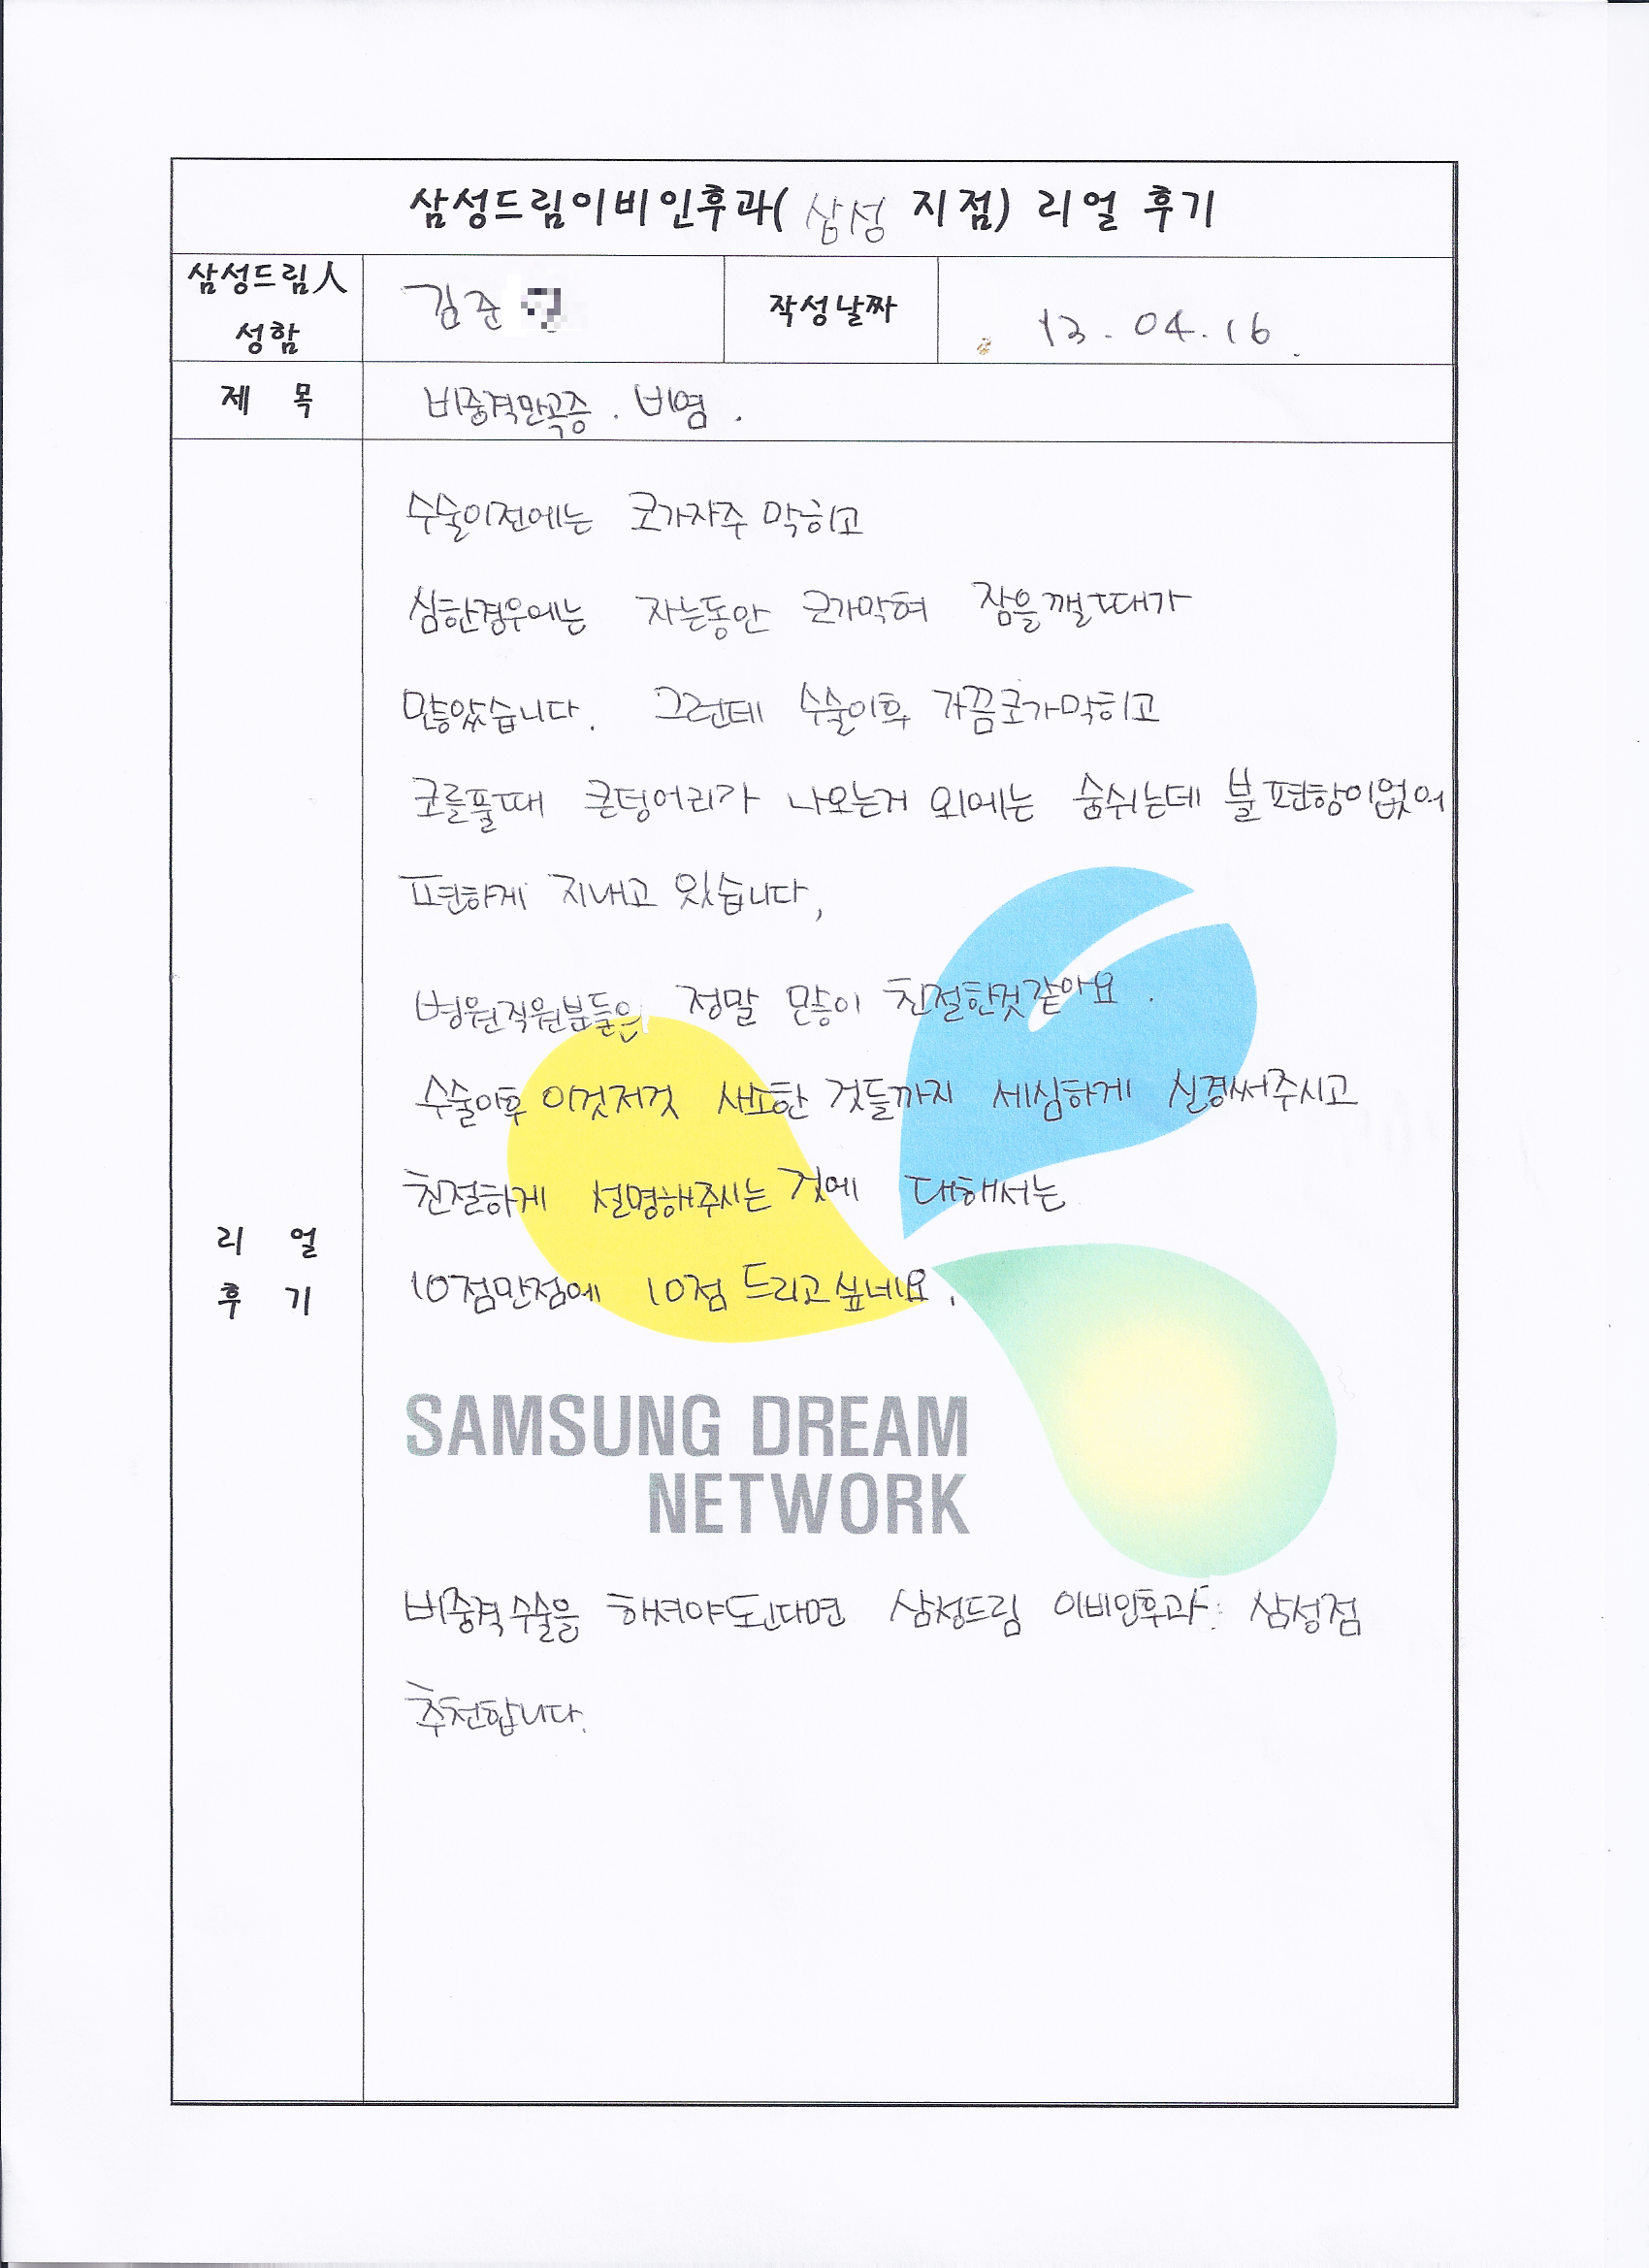 삼성드림이비인후과( 삼성 지점) 리얼 후기
삼성드림人 성함
김준
작성날짜
13.04.16.
제 목
비중격만곡증. 비염.
리 얼 후 기
수술이전에는 코가자주 막히고
심한경우에는 자는동안 코가막혀 잠을깰때가
많았습니다. 그런데 수술이후 가끔코가막히고
코를풀때 큰덩어리가 나오는거 외에는 숨쉬는데 불편함이없어
편하게 지내고 있습니다,
병원직원분들은 정말 많이 친절한것같아요.
수술이후 이것저것 사소한 것들까지 세심하게 신경써주시고
친절하게 설명해주시는 것에 대해서는
10점만점에 10점 드리고싶네요.
SAMSUNG DREAM
NETWORK
비중격수술을 하셔야된다면 삼성드림 이비인후과 삼성점
추천합니다.